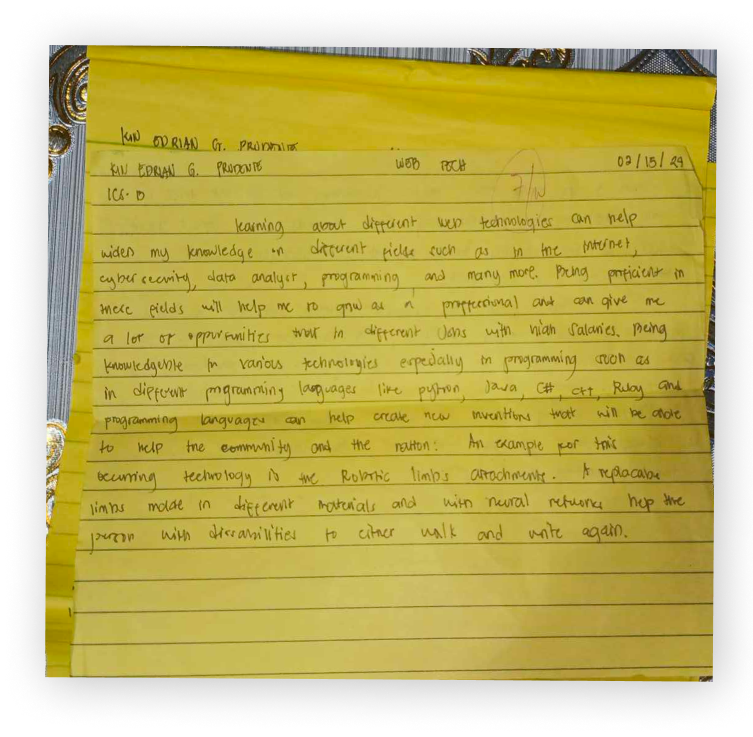 KIN EDRIAN G. PRUDENTE
KIN EDRIAN G. PRUDENTE WEB TECH 02/15/24
7/10
ICS-B
learning about different web technologies can help
widen my knowledge in different fields such as in the Internet,
cyber security, data analyst, programming, and many more. Being proficient in
these fields will help me to grow as a proffessional and can give me
a lot of oppurtunities trust in different Jobs with high salaries. Being
knowledgeble in various technologies especially in programming such as
in different programming languages like python, Java, C#, C++, Ruby and
programming languages can help create new inventions that will be able
to help the community and the nation. An example for this
occurring technology is the Robotic limbs attachments. A replacable
limbs molde in different materials and with neural networks help the
person with dissabilities to either walk and write again.